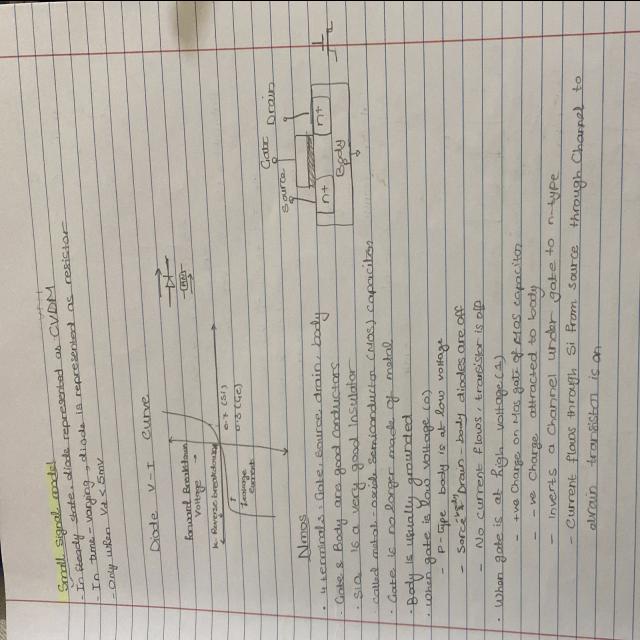 Small signal model
- In steady state, diode represented as CVDM
- In time-varying → diode is represented as resistor
- Only when Vd < 5mV
Diode V-I Curve
Forward Breakdown
Voltage →
Reverse breakdown
Leakage
Current
0.7 (Si)
0.3 (Ge)
Nmos
• 4 terminals: Gate, source, drain, body
• Gate & Body are good conductors
• SiO2 is a very good Insulator
• Called metal-oxide semiconductor (MOS) capacitor
• Gate is no longer made of metal
Source
Gate
Drain
n+
n+
Body
• Body is usually grounded
• When gate is low voltage (0)
- P-type body is at low voltage
- Source-body & Drain-body diodes are off
- No current flows, transistor is off
• When gate is at high voltage (1)
- +ve charge on MOS gate of MOS capacitor
- -ve charge attracted to body
- Inverts a channel under gate to n-type
- Current flows through Si from source through channel to
drain transistor is on